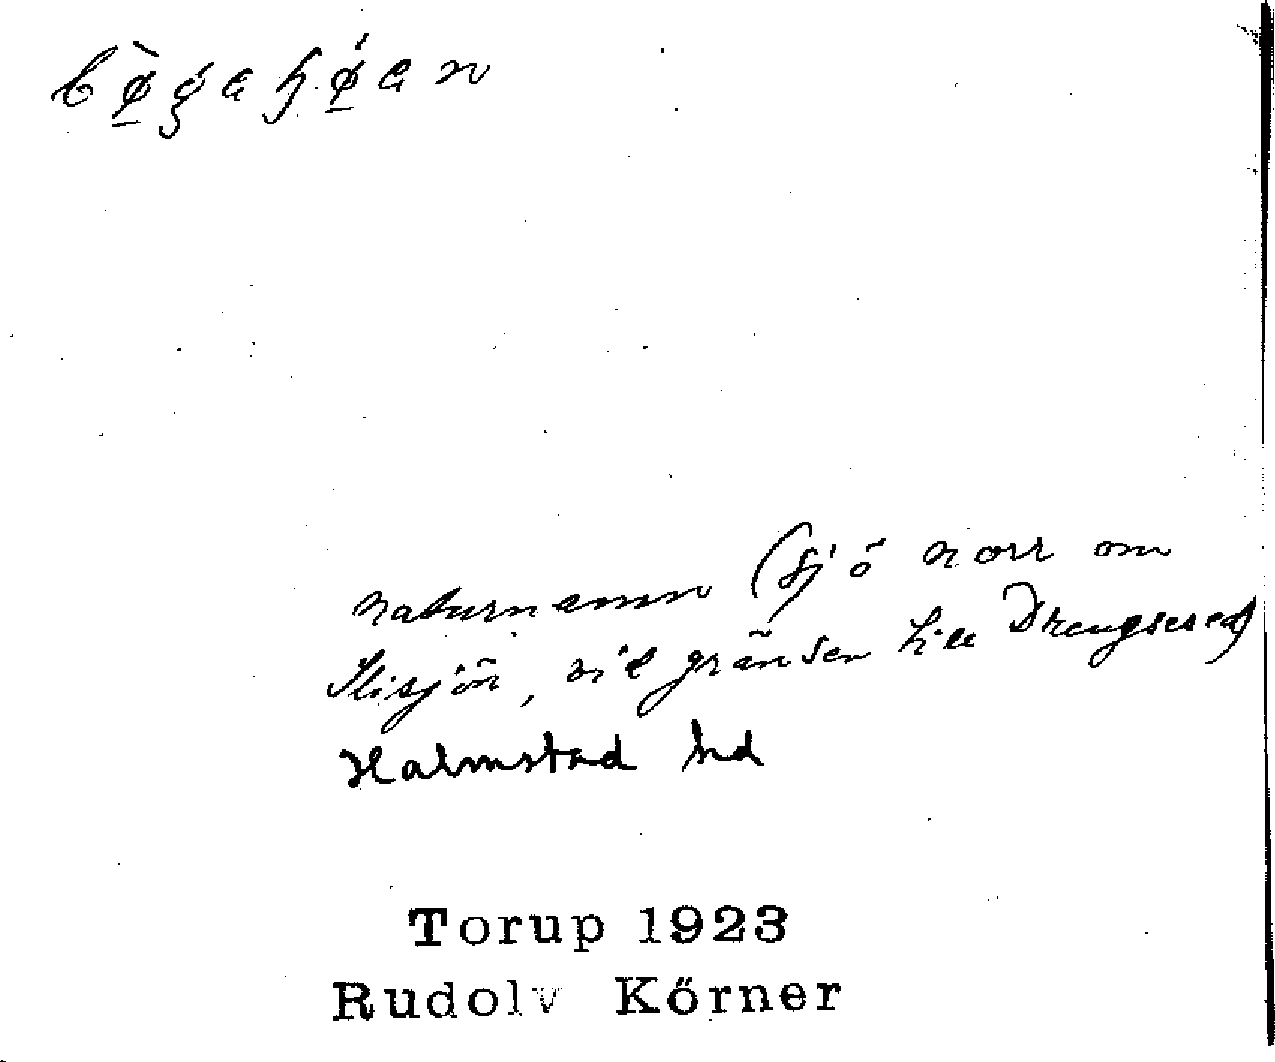 naturnamn (sjö norr om
Flisjön, vid gränsen till Drengsered)
Halmstad hd
Torup 1923
Rudolv Körner